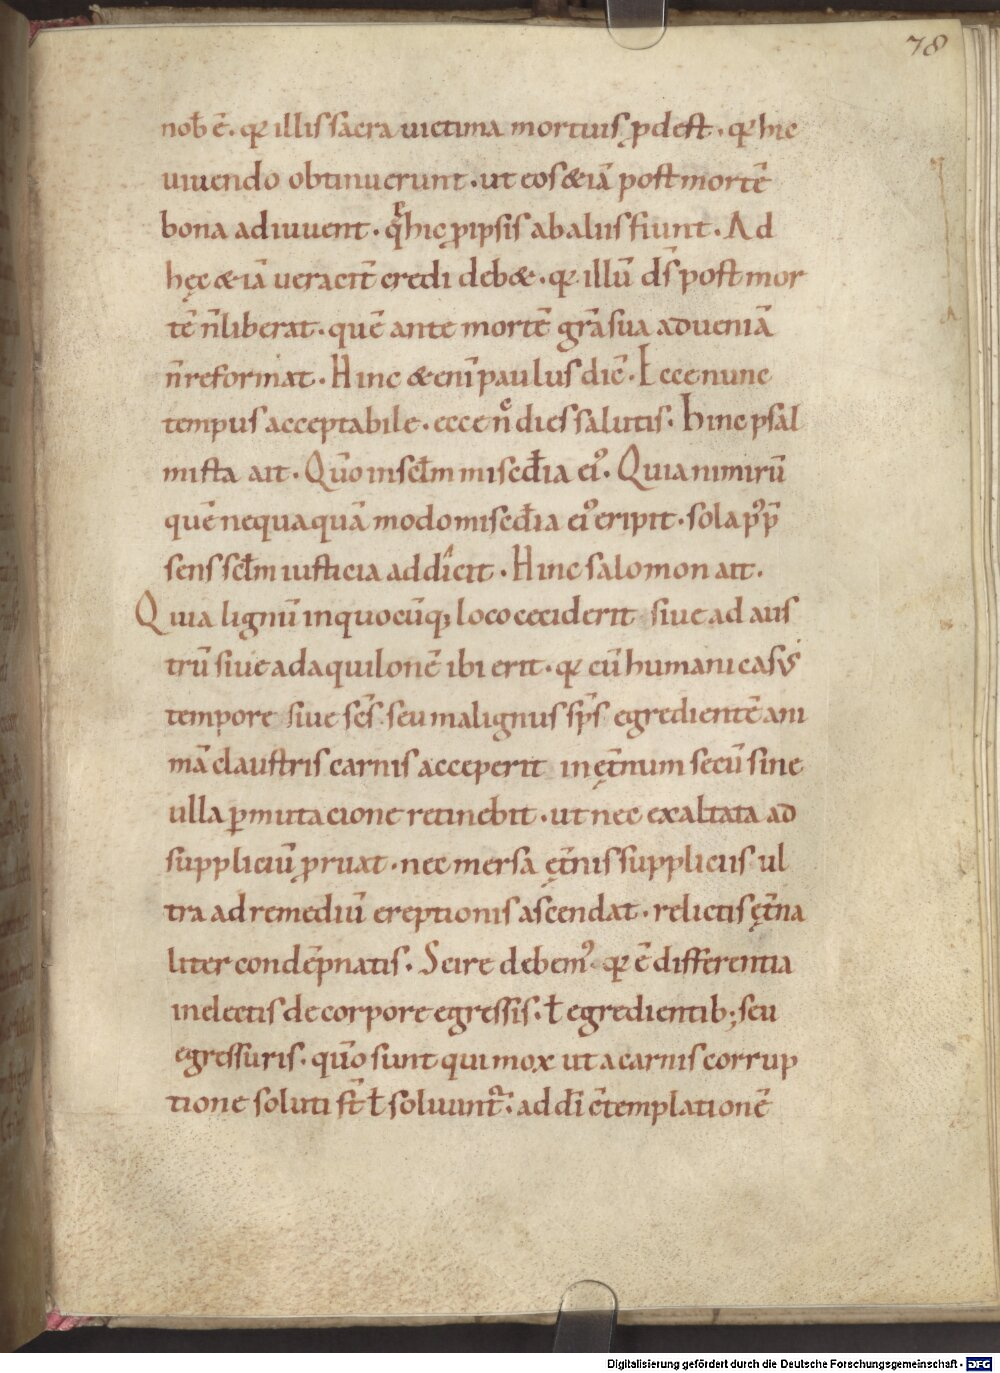 78
nob̄ ē. qꝛ illis sacra uictima mortuis ꝓdest. qꝛ hic
uiuendo obtinuerunt. ut eos &iā post mortē
bona adiuuent. q̄ hic ꝓ ipsis ab aliis fiunt. Ad
hęc &iā ueracit̄ credi deb&. qꝛ illū d̄s post mor
tē n̄ liberat. quē ante mortē gr̄a sua ad ueniā
n̄ reformat. Hinc &enī paulus dic̄. Ecce nunc
tempus acceptabile. ecce nͨ dies salutis. Hinc psal
mista ait. Qūo in sc̄lm misc̄dia ei᾿. Quia nimirū
quē nequaquā modo misc̄dia ei᾿ eripit. sola p᾿ p̄
sens sc̄lm iusticia addicit. Hinc salomon ait.
Quia lignū in quocūq; loco ceciderit siue ad aus
trū siue ad aquilonē ibi erit. qꝛ cū humani casus
tempore siue sc̄s. seu malignus sp̄s egredientē ani
mā claustris carnis acceperit in ęt̄num secū sine
ulla ꝑmutacione retinebit. ut nec exaltata ad
suppliciū ꝓruat. nec mersa ęt̄nis suppliciis ul
tra ad remediū ereptionis ascendat. relictis ęt̄na
liter condēpnatis. Scire debem᾿ qꝛ ē differentia
in electis de corpore egressis. ł egredientib; seu
egressuris. qūo sunt qui mox ut a carnis corrup
tione soluti st̄ ł soluunt᷑. ad dī c̄templationē
Digitalisierung gefördert durch die Deutsche Forschungsgemeinschaft - DFG